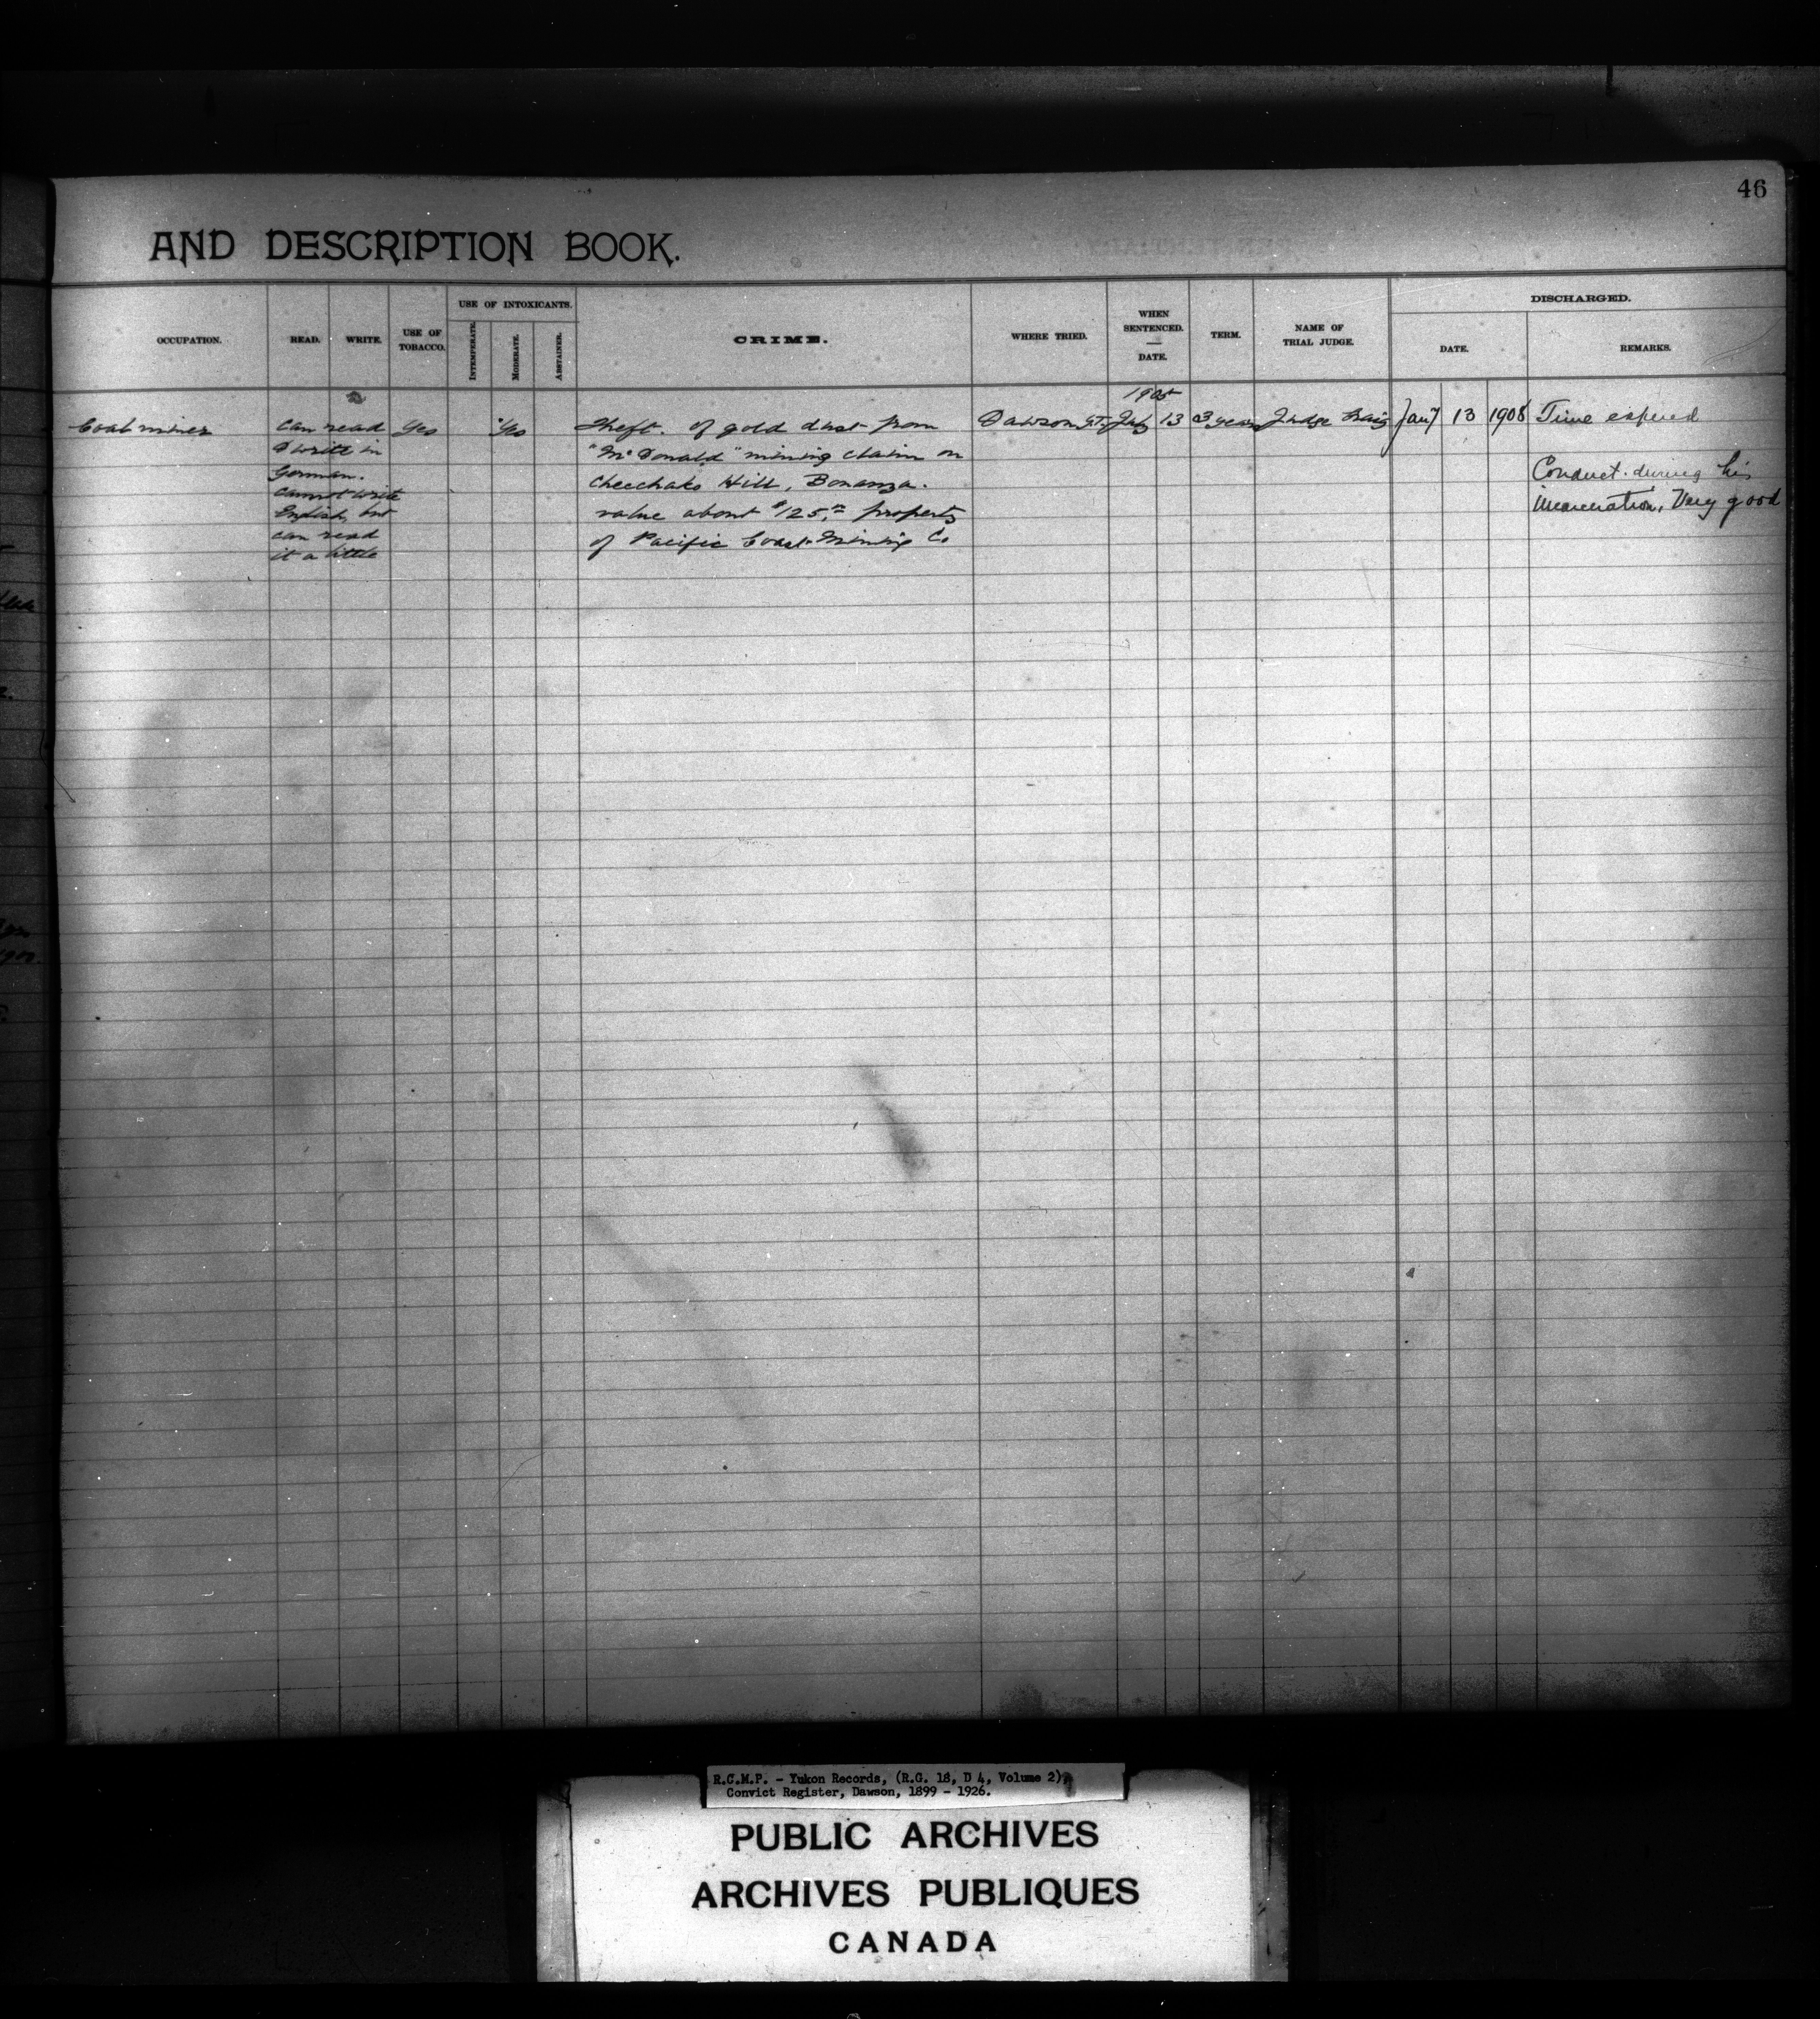 46
AND DESCRIPTION BOOK.
OCCUPATION.
READ.
WRITE.
USE OF
TOBACCO.
USE OF INTOXICANTS.
INTEMPERATE.
MODERATE.
ABSTAINER.
CRIME.
WHERE TRIED.
WHEN
SENTENCED.
—
DATE.
TERM.
NAME OF
TRIAL JUDGE.
DISCHARGED.
DATE.
REMARKS.
Coal miner
can read
& write in
German.
Cannot write
English, but
can read
it a little
Yes
Yes
Theft. of gold dust from
"McDonald" mining claim on
Cheechako Hill, Bonanza.
value about $125.00 property
of Pacific Coast Mining Co
Dawson Y.T.
1905
July 13
3 years
Judge Craig
Jany 13 1908
Time expired
Conduct during his
incarceration, Very good
R.C.M.P. - Yukon Records, (R.G. 18, D 4, Volume 2),
Convict Register, Dawson, 1899 - 1926.
PUBLIC ARCHIVES
ARCHIVES PUBLIQUES
CANADA